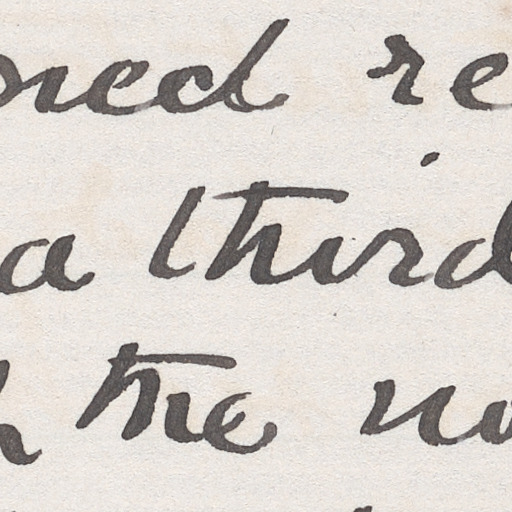 ned re
a third
h the no